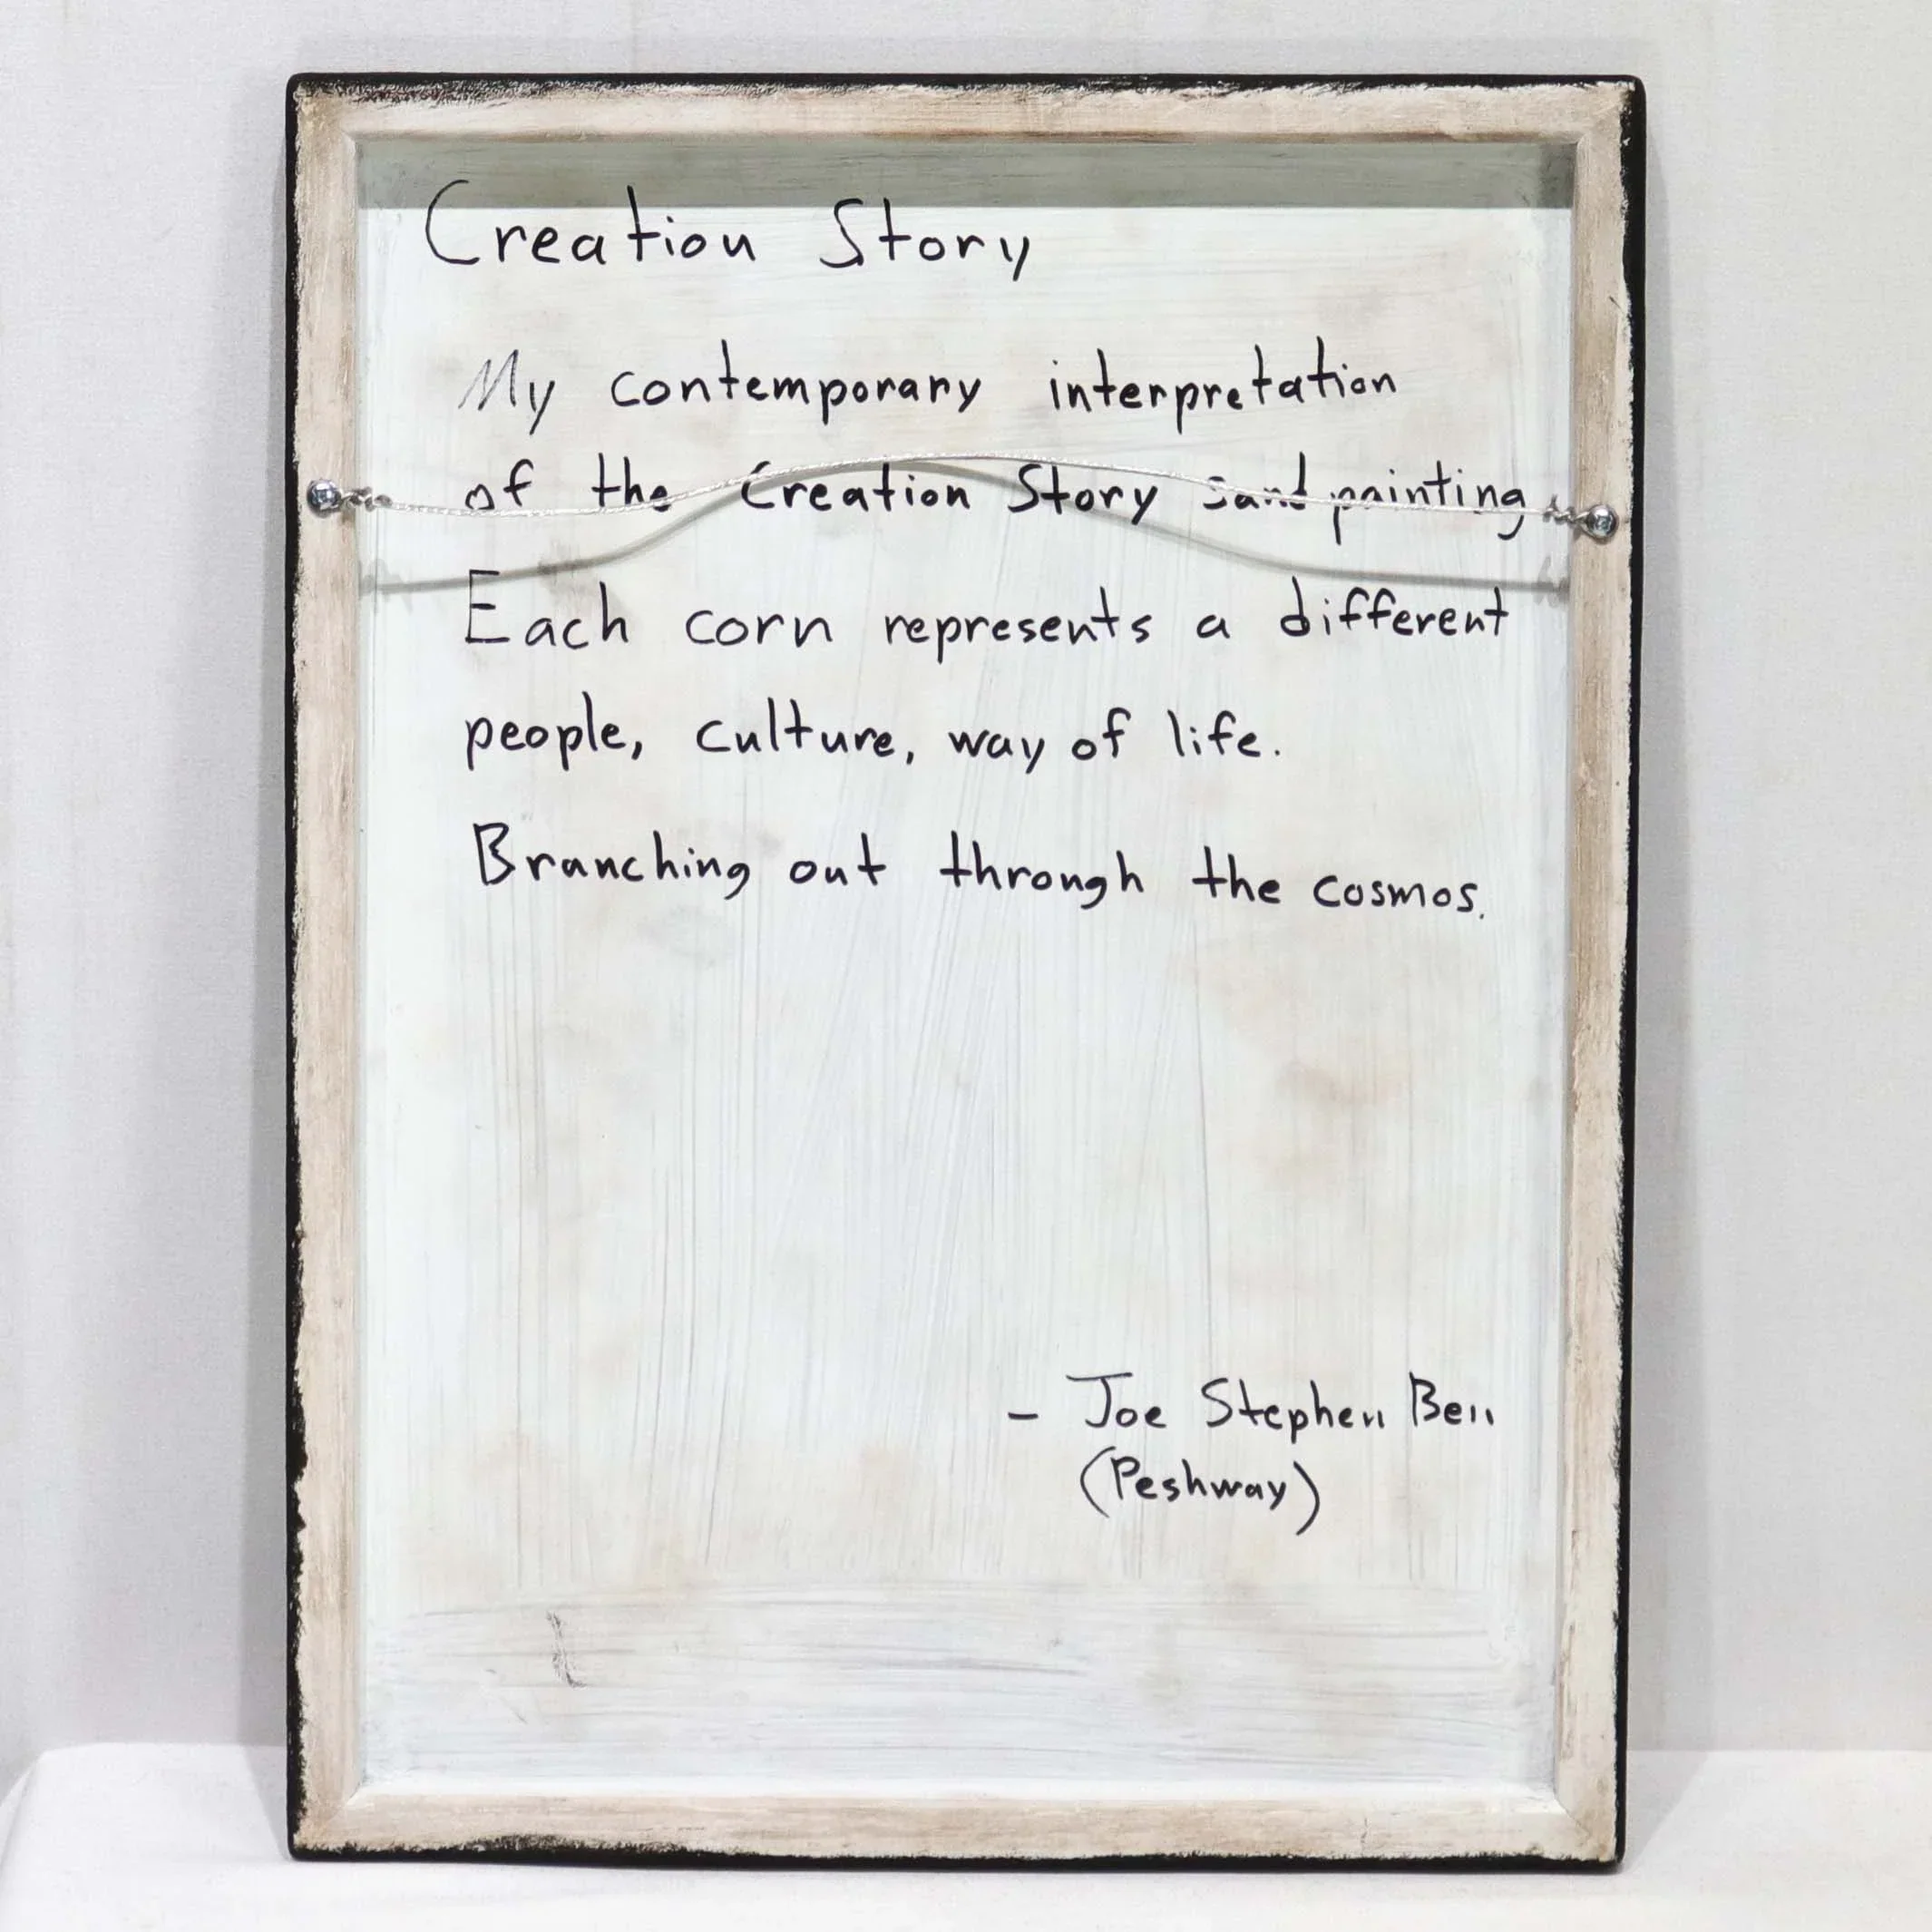 Creation Story
My contemporary interpretation
of the Creation Story sand painting
Each corn represents a different
people, culture, way of life.
Branching out through the cosmos.
- Joe Stephen Ben
(Peshway)